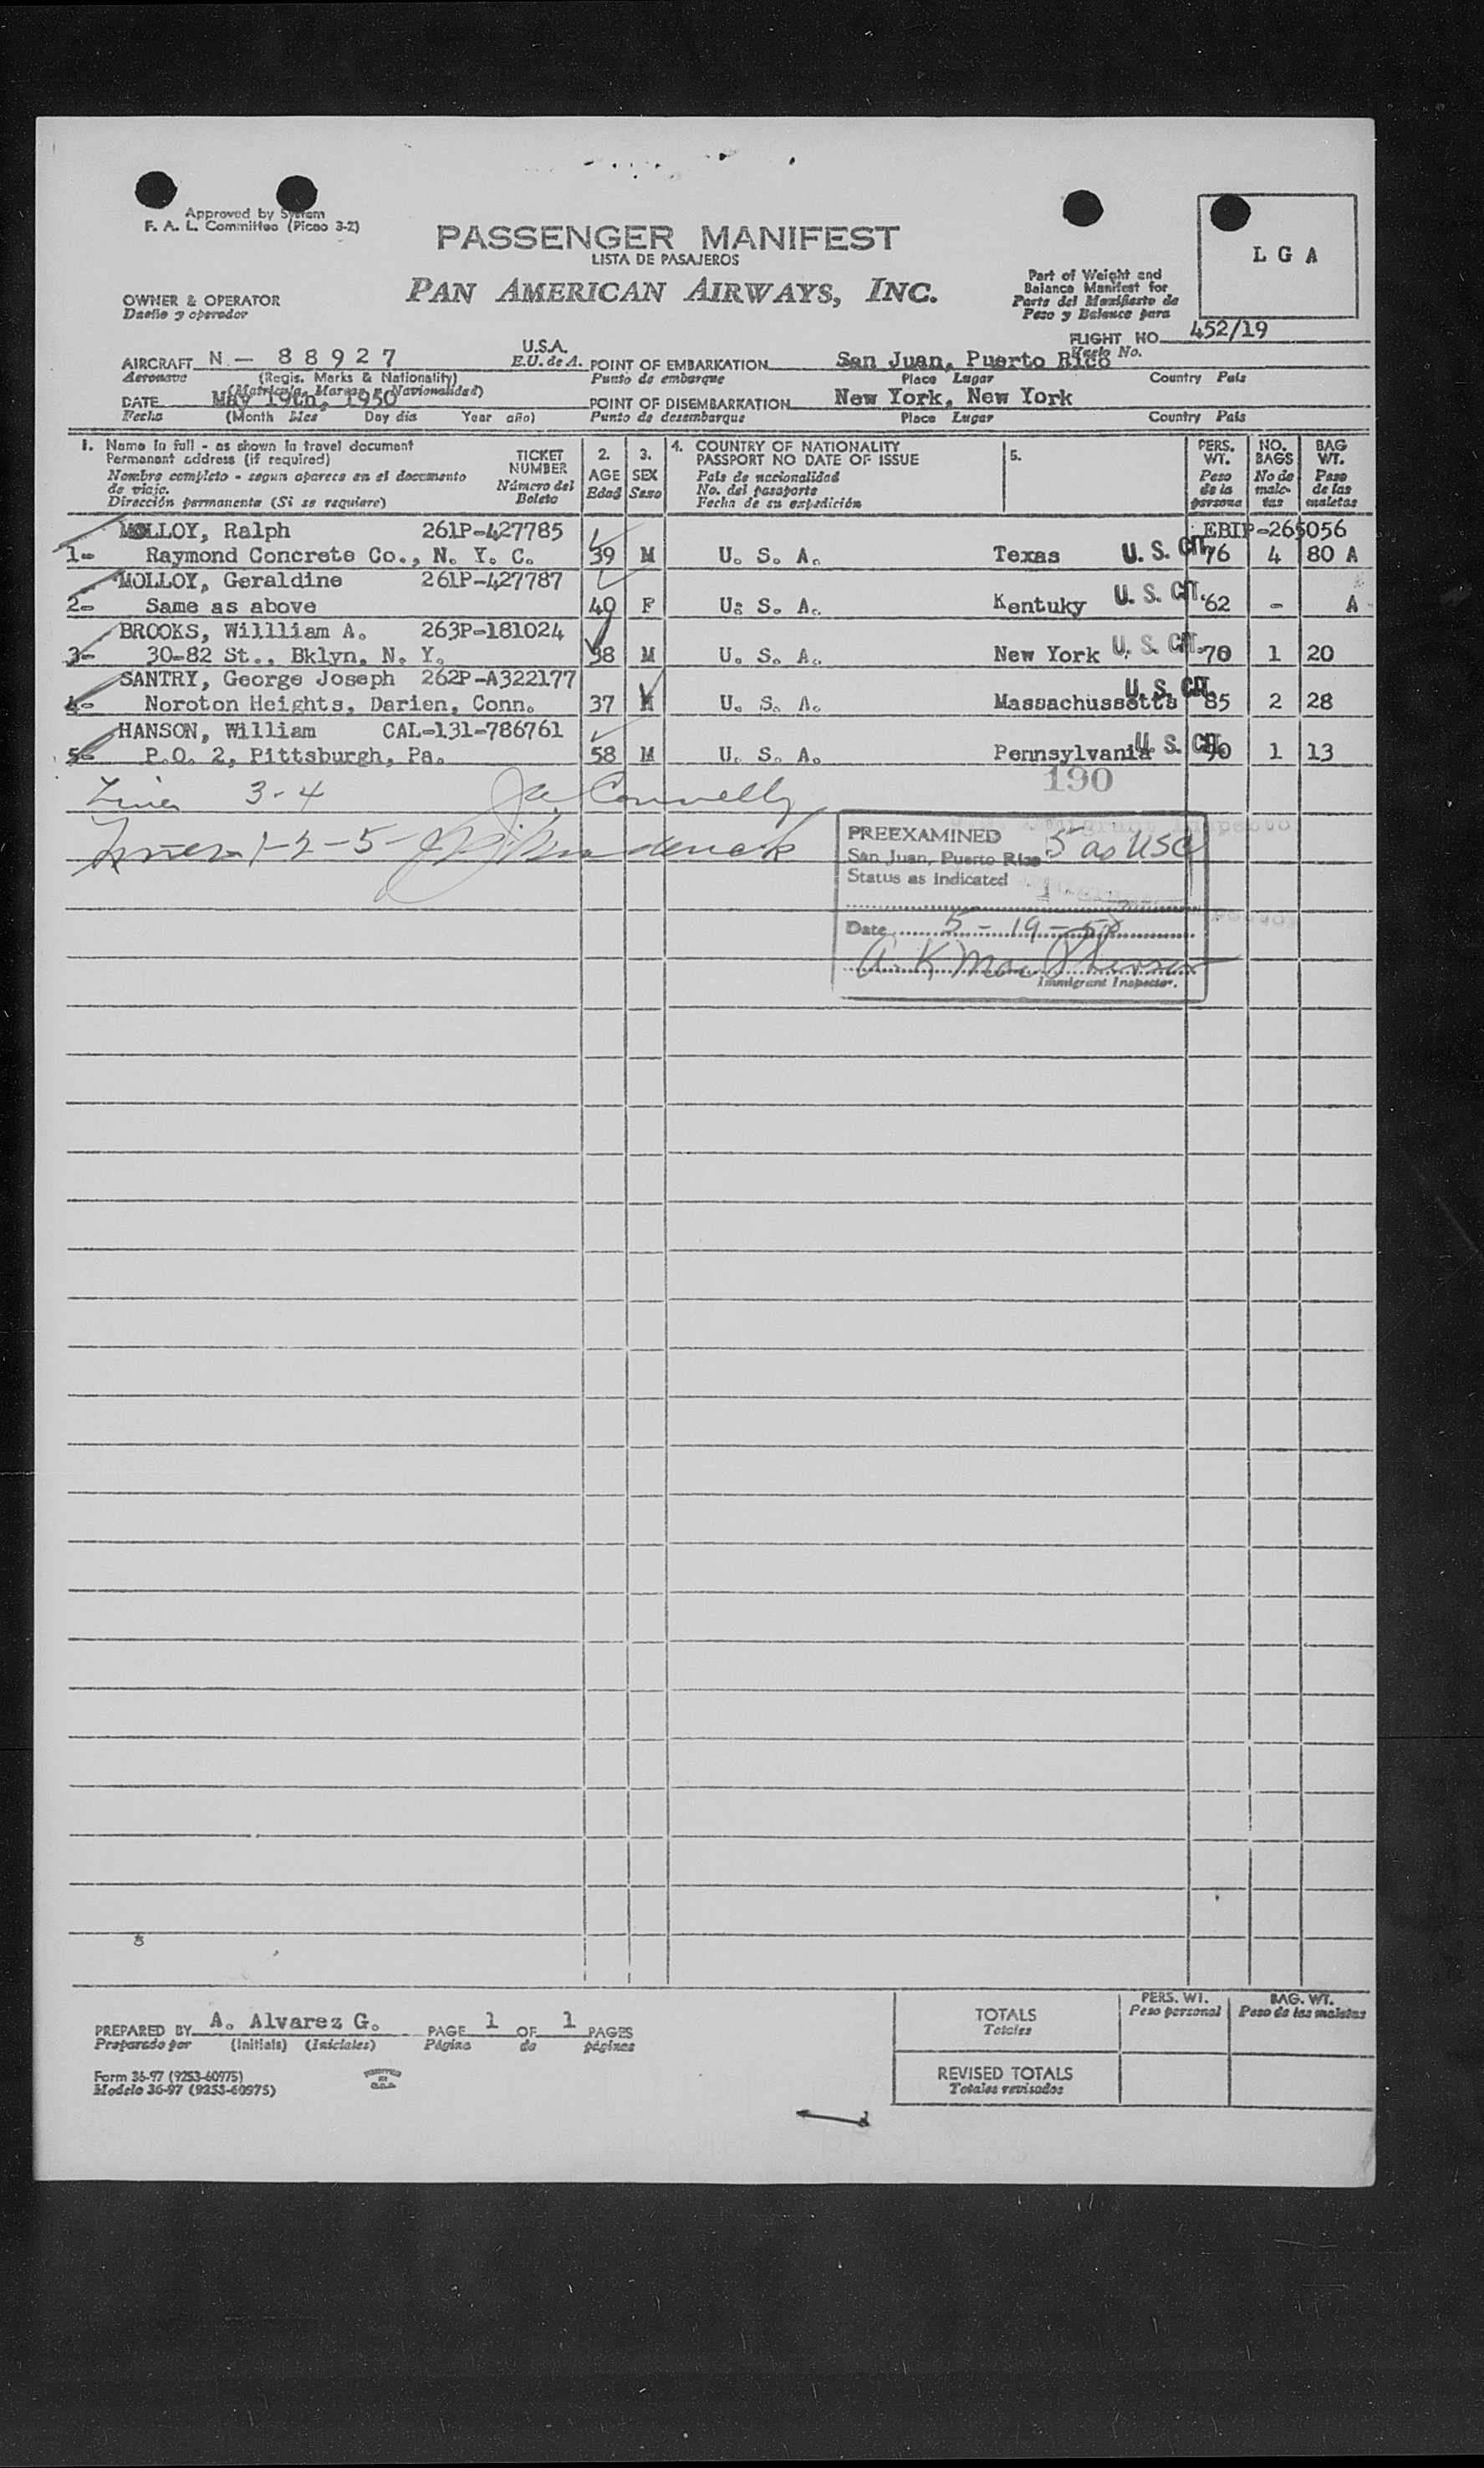 Approved by System
F. A. L. Committee (Picao 3-2)
PASSENGER MANIFEST
LISTA DE PASAJEROS
PAN AMERICAN AIRWAYS, INC.
L G A
Part of Weight and
Balance Manifest for
Parte del Manifiesto de
Peso y Balance para
OWNER & OPERATOR
Dueño y operador
FLIGHT NO. 452/19
Vuelo No.
AIRCRAFT N - 8 8 9 2 7 U.S.A. POINT OF EMBARKATION San Juan, Puerto Rico
Aeronave (Regis. Marks & Nationality) E.U. de A. Punto de embarque Place Lugar Country País
(Matricula, Marcas y Navionalidad)
DATE May 19th, 1950 POINT OF DISEMBARKATION New York, New York
Fecha (Month Mes Day dia Year año) Punto de desembarque Place Lugar Country País
1. Name in full - as shown in travel document
Permanent address (if required)
Nombre completo - segun aparece en el documento
de viaje.
Dirección permanente (Si se requiere)
TICKET
NUMBER
Número del
Boleto
2.
AGE
Edad
3.
SEX
Sexo
4. COUNTRY OF NATIONALITY
PASSPORT NO DATE OF ISSUE
País de nacionalidad
No. del pasaporte
Fecha de su expedición
5.
PERS.
WT.
Peso
de la
persona
NO.
BAGS
No de
male-
tas
BAG
WT.
Peso
de las
maletas
MOLLOY, Ralph 261P-427785 EBIP-265056
1- Raymond Concrete Co., N. Y. C. 39 M U. S. A. Texas U. S. CIT. 76 4 80 A
MOLLOY, Geraldine 261P-427787
2- Same as above 40 F U. S. A. Kentuky U. S. CIT. 62 - A
BROOKS, Willliam A. 263P-181024
3- 30-82 St., Bklyn, N. Y. 38 M U. S. A. New York U. S. CIT. 70 1 20
SANTRY, George Joseph 262P-A322177
4- Noroton Heights, Darien, Conn. 37 M U. S. A. Massachussetts U. S. CIT. 85 2 28
HANSON, William CAL-131-786761
5- P.O. 2, Pittsburgh, Pa. 58 M U. S. A. Pennsylvania U. S. CIT. 90 1 13
190
Lines 3-4 Connelly
Lines 1-2-5-
PREEXAMINED
San Juan, Puerto Rico 5 as USC
Status as indicated
Date 5-19-50
A. K. MacPherson
Immigrant Inspector.
PREPARED BY A. Alvarez G. PAGE 1 OF 1 PAGES
Preparado por (Initials) (Iniciales) Página de páginas
Form 36-97 (9253-60975)
Modelo 36-97 (9253-60975)
PERS. WT.
Peso personal
BAG. WT.
Peso de las maletas
TOTALS
Totales
REVISED TOTALS
Totales revisados